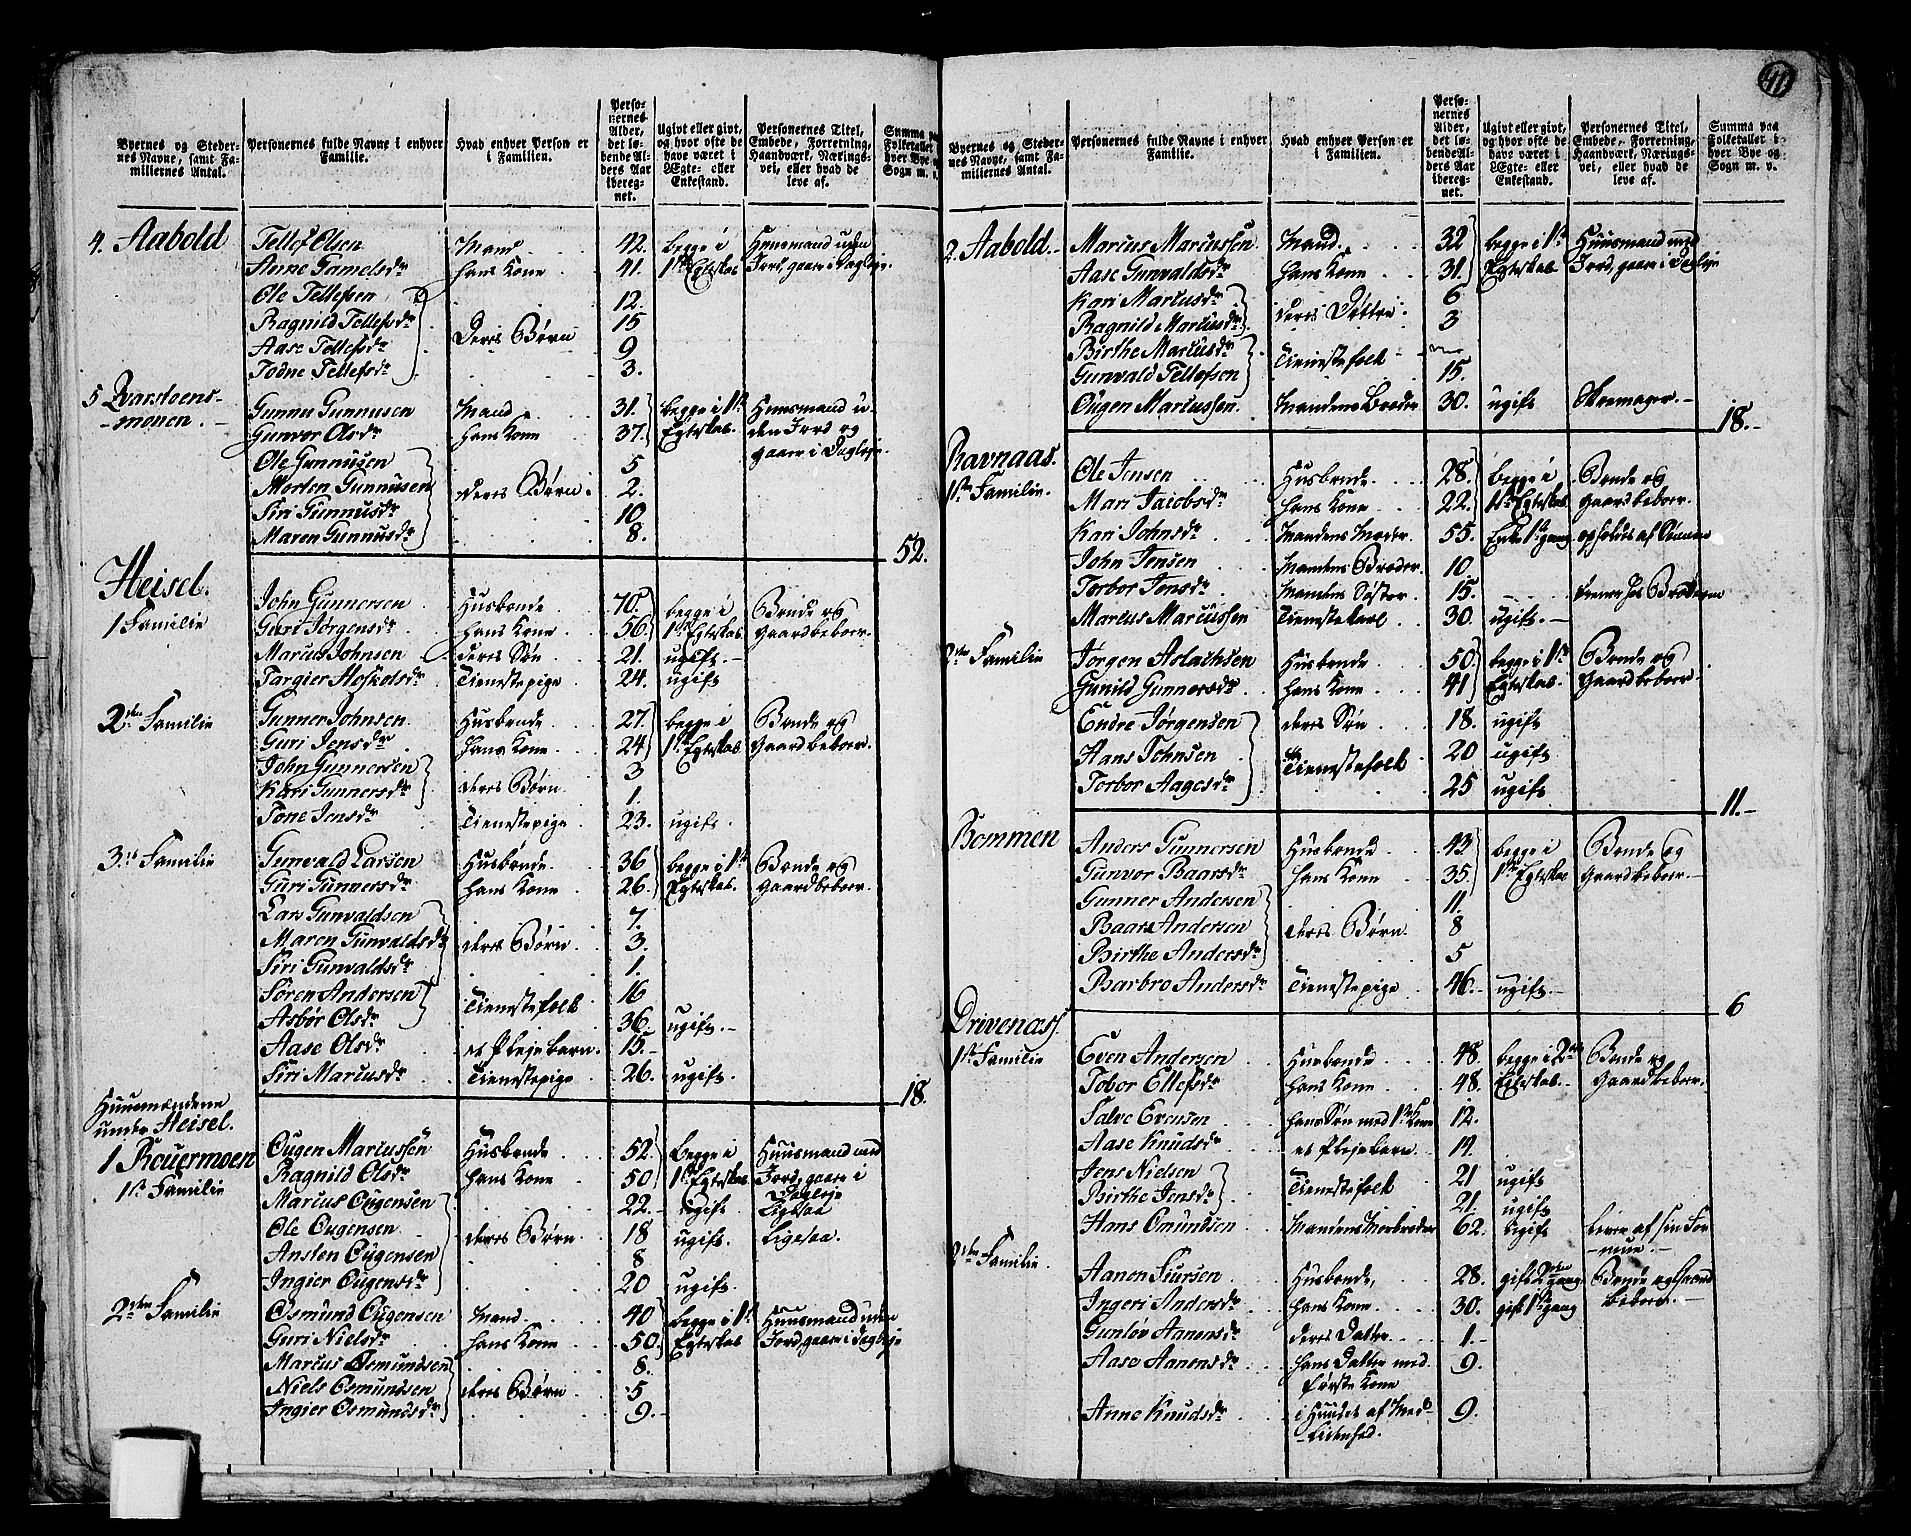 41
Byernes og Steder-
nes Navne, samt Fa-
miliernes Antal.
Personernes fulde Navne i enhver
Familie.
Hvad enhver Person er
i Familien.
Perso-
nernes
Alder,
det lø-
bende Al-
ders Aar
iberegnet.
Ugivt eller givt,
og hvor ofte de
have været i
Ægte- eller
Enkestand.
Personernes Titel,
Embede, Forretning,
Haandværk, Nærings-
vei, eller hvad de
leve af.
Summa paa
Folketallet i
hver Bye og
Sogn m. v.
4. Aabold Tellef Olsen Mand 42. begge i Huusmand uden
Anne Tamelsdr hans Kone 41. 1ste Egteskab Jord, gaaer i Dagleje.
Ole Tellefsen 12.
Ragnild Tellefsdr Deres Børn 15
Aase Tellefsdr 9
Todne Tellefsdr 3.
5 Qvarstoens-
-monen. Gunnu Gunnusen Mand 31. begge i 1ste Huusmand u-
Gunvor Olsdr hans Kone 37. Egteskab. den Jord og
gaaer i Dagleje.
Ole Gunnusen 5
Morten Gunnusen deres Børn 2.
Siri Gunnusdr 10
Maren Gunnusdr 8.
52.
Heisel.
1 Familie John Gunnersen Husbonde 70. begge i Bonde og
Guri Jørgensdr hans Kone 56. 1ste Egteskab Gaardbeboer.
Marcus Johnsen deres Søn 21. ugift.
Targier Hoskolsdr Tienestepige 24. ugift
2den Familie Gunner Johnsen Husbonde 27. begge i Bonde og
Guri Jensdr hans Kone 24 1ste Egteskab Gaardbeboer.
John Gunnersen 3
Kari Gunnersdr deres Børn 1.
Tone Jensdr Tienestepige 23. ugift.
3die Familie Gunvald Larsen Husbonde 36 begge i 1ste Bonde og
Guri Gunnersdr hans Kone 26. Egteskab. Gaardbeboer.
Lars Gunvaldsen 7.
Maren Gunvaldsdr deres Børn 3.
Siri Gunvaldsdr 1.
Søren Andersen Tienestefolk 16
Asbør Olsdr 36. ugift.
Aase Olsdr et Plejebarn 15.
Siri Marcusdr Tienestepige 26. ugift.
18.
Huusmændene
under Heisel.
1 Rouermoen Ougen Marcussen Husbonde 52. begge i Huusmand med
1ste Familie Ragnild Olsdr hans Kone 50 1ste Egteskab Jord, gaaer i
Dagleje
Marcus Ougensen 22. ugift Ligesaa
Ole Ougensen deres Børn 18 ugift. Ligesaa.
Ansten Ougensen 8
Ingier Ougensdr 20 ugift
2den Familie Osmund Ougensen Mand 40 begge i 1ste Huusmand uden
Guri Nielsdr hans Kone 50. Egteskab Jord, gaaer i Dagleje
Marcus Osmundsen 8.
Niels Osmundsen deres Børn 5
Ingier Osmundsdr 9.
Byernes og Steder-
nes Navne, samt Fa-
miliernes Antal.
Personernes fulde Navne i enhver
Familie.
Hvad enhver Person er
i Familien.
Perso-
nernes
Alder,
det lø-
bende Al-
ders Aar
iberegnet.
Ugivt eller givt,
og hvor ofte de
have været i
Ægte- eller
Enkestand.
Personernes Titel,
Embede, Forretning,
Haandværk, Nærings-
vei, eller hvad de
leve af.
Summa paa
Folketallet i
hver Bye og
Sogn m. v.
2. Aabold. Marcus Marcussen Mand 32 begge i 1ste Huusmand med
Aase Gunvaldsdr hans Kone 31. Egteskab Jord, gaaer i Dagleje
Kari Marcusdr deres Døttre 6
Ragnild Marcusdr 3
Birthe Marcusdr Tienestefolk
Gunvald Tellefsen 15.
Ougen Marcussen Mandens Broder 30. ugift Skomager.
18.
Ravnaas.
1ste Familie. Ole Jensen Husbonde 28. begge i Bonde og
Mari Jacobsdr hans Kone 22. 1ste Egteskab Gaardbeboer.
Kari Johnsdr Mandens Moder. 55. Enke 1ste gang opholdes af Sønnen
John Jensen Mandens Broder. 10.
Torbor Jensdr Mandens Søster. 15. tiener hos Broderen
Marcus Marcussen Tienestekarl 30. ugift.
2den Familie Jørgen Aslachsen Husbonde 50 begge i 1ste Bonde og
Gunild Gunnersdr hans Kone 41 Egteskab. Gaardbeboer.
Endre Jørgensen deres Søn 18. ugift
Hans Johnsen Tienestefolk 20 ugift
Torbor Aagesdr 25 ugift
11.
Bommen Anders Gunnersen Husbonde 43 begge i Bonde og
Gunvor Baarsdr hans Kone 35. 1ste Egteskab Gaardbeboer.
Gunner Andersen 11.
Baar Andersen deres Børn 8
Birthe Andersdr 5
Barbro Andersdr Tienestepige 46. ugift.
6
Drivenæss.
1ste Familie Even Andersen Husbonde 48. begge i 2det Bonde og
Tobor Ellefsdr hans Kone 48. Egteskab. Gaardbeboer.
Salve Evensen hans Søn med 1ste Kone 12.
Aase Knudsdr et Plejebarn 14.
Jens Nielsen Tienestefolk 21 ugift
Birthe Jensdr 21. ugift
Hans Omundsen Mandens Morbroder 62. Ugift lever af sin For
-mue.
2den Familie. Aanen Siursen Husbonde, 28. gift 2den gang Bonde og Gaard
Ingeri Andersdr hans Kone 30. gift 1ste gang beboer.
Gunløv Aanensdr deres Datter 1.
Aase Aanensdr hans Datter med 9.
første Kone
Anne Knudsdr i Huuset af Med- 9.
-lidenhed.